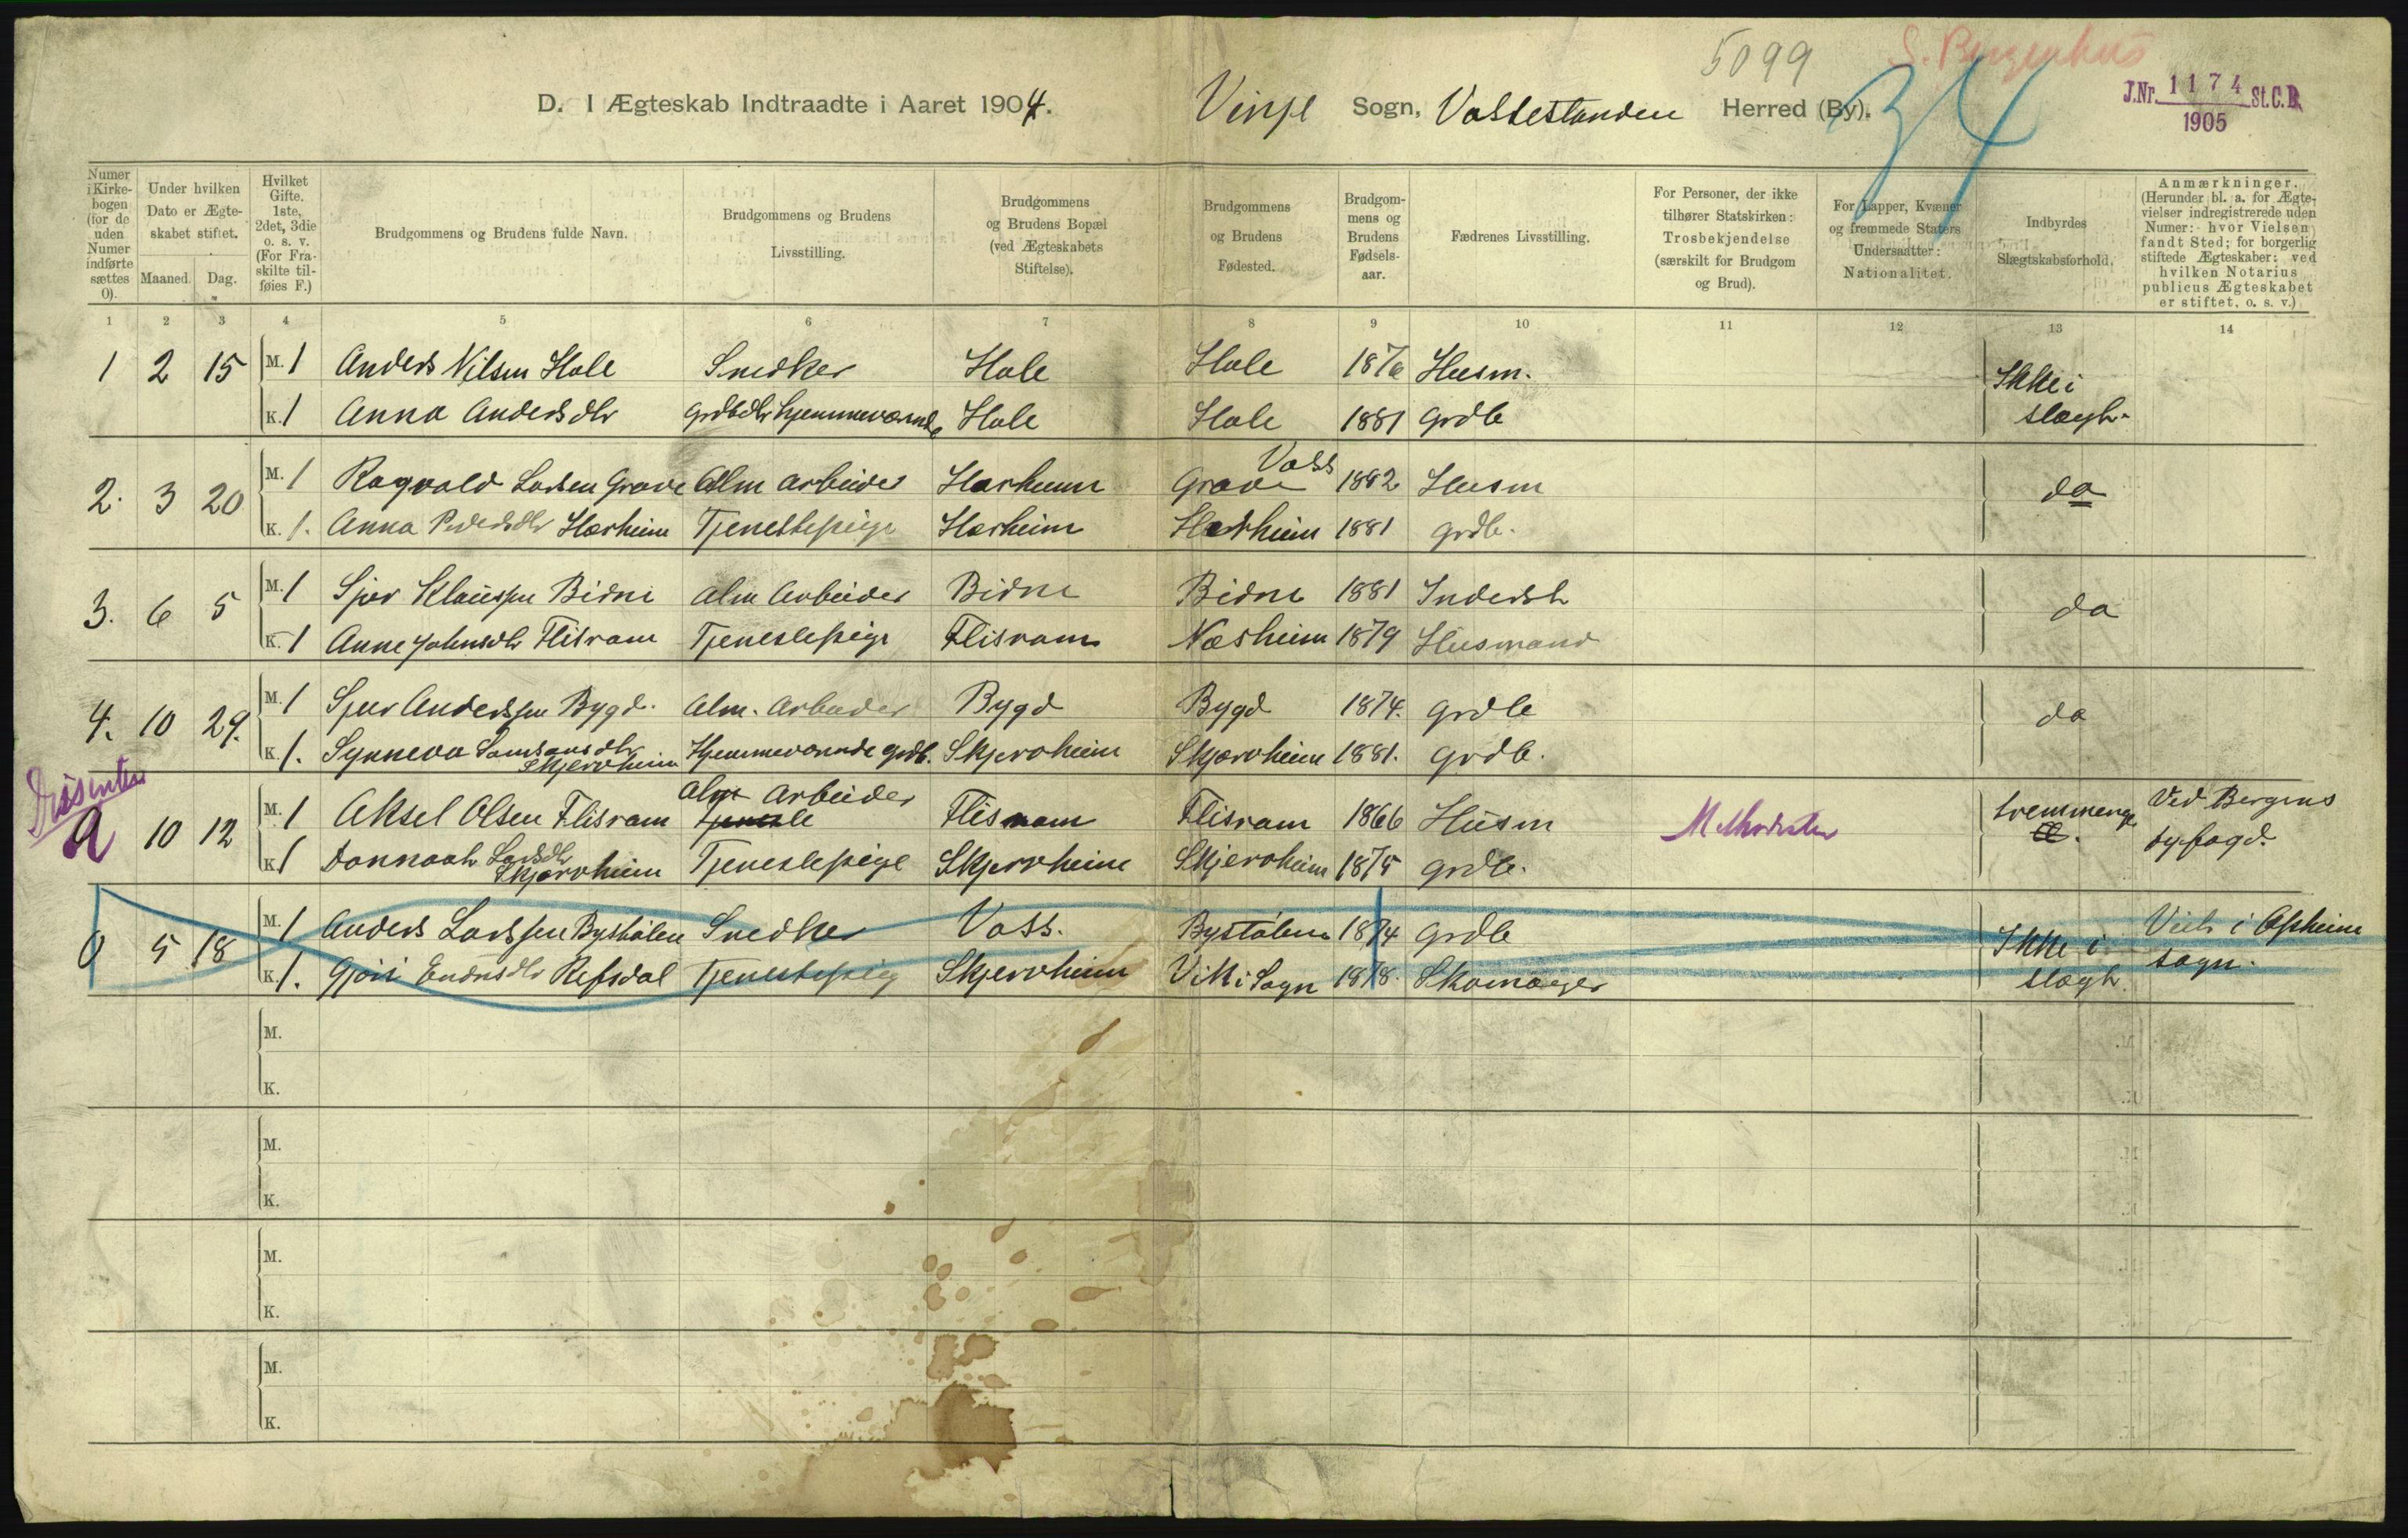 5099
S. Bergenhus
34
D. I Ægteskab Indtraadte i Aaret 1904.
Vinje Sogn, Vossestanden Herred (By).
J.Nr. 1174 St.C.B.
1905
Numer i Kirkebogen (for de uden Numer indførte sættes 0).
Under hvilken Dato er Ægteskabet stiftet.
Maaned. Dag.
Hvilket Gifte. 1ste, 2det, 3die o. s. v. (For Fraskilte tilføies F.)
Brudgommens og Brudens fulde Navn.
Brudgommens og Brudens Livsstilling.
Brudgommens og Brudens Bopæl (ved Ægteskabets Stiftelse).
Brudgommens og Brudens Fødested.
Brudgommens og Brudens Fødselsaar.
Fædrenes Livsstilling.
For Personer, der ikke tilhører Statskirken: Trosbekjendelse (særskilt for Brudgom og Brud).
For Lapper, Kvæner og fremmede Staters Undersaatter: Nationalitet.
Indbyrdes Slægtskabsforhold.
Anmærkninger. (Herunder bl. a. for Ægtevielser indregistrerede uden Numer: hvor Vielsen fandt Sted; for borgerlig stiftede Ægteskaber: ved hvilken Notarius publicus Ægteskabet er stiftet, o. s. v.)
1 2 3 4 5 6 7 8 9 10 11 12 13 14
1 2 15 M. 1 Anders Nilsen Hole Snedker Hole Hole 1876 Husm. Ikke i
K. 1 Anna Andersdtr Grdbdtr hjemmeværende Hole Hole 1881 Grdb slægt.
2. 3 20 M. 1 Ragvald Larsen Grove Alm arbeider Horheim Grove Voss 1882 Husm do
K. 1. Anna Pedersdtr Horheim Tjenestepige Horheim Horheim 1881 grdb.
3. 6 5 M. 1 Sjur Klaussen Bidne Alm Arbeider Bidne Bidne 1881 Inderst do
K. 1 Anne Johnsdtr Flisram Tjenestepige Flisram Næsheim 1879 Husmand
4. 10 29. M. 1 Sjur Anderssen Bygd. Alm. Arbeider Bygd Bygd 1874. grdb do
K. 1. Synneva Samsonsdtr Skjervheim Hjemmeværende grdb. Skjervheim Skjærvheim 1881. grdb.
Dissenter
a 10 12 M. 1 Aksel Olsen Flisram Alm Arbeider Flisram Flisram 1866 Husm Methodister tremenge Ved Bergens
K. 1 Dannaah Larsdtr Skjervheim Tjenestepige Skjervheim Skjervheim 1875 grdb. byfogd.
0 5 18 M. 1 Anders Larssen Bystølen Snedker Voss. Bystølen 1874 grdb Ikke i Viet i Opheim
K. 1. Gjøri Endresdtr Refsdal Tjenestepig Skjervheim Vik i Sogn 1878. Skomager slægt. sogn.
M.
K.
M.
K.
M.
K.
M.
K.